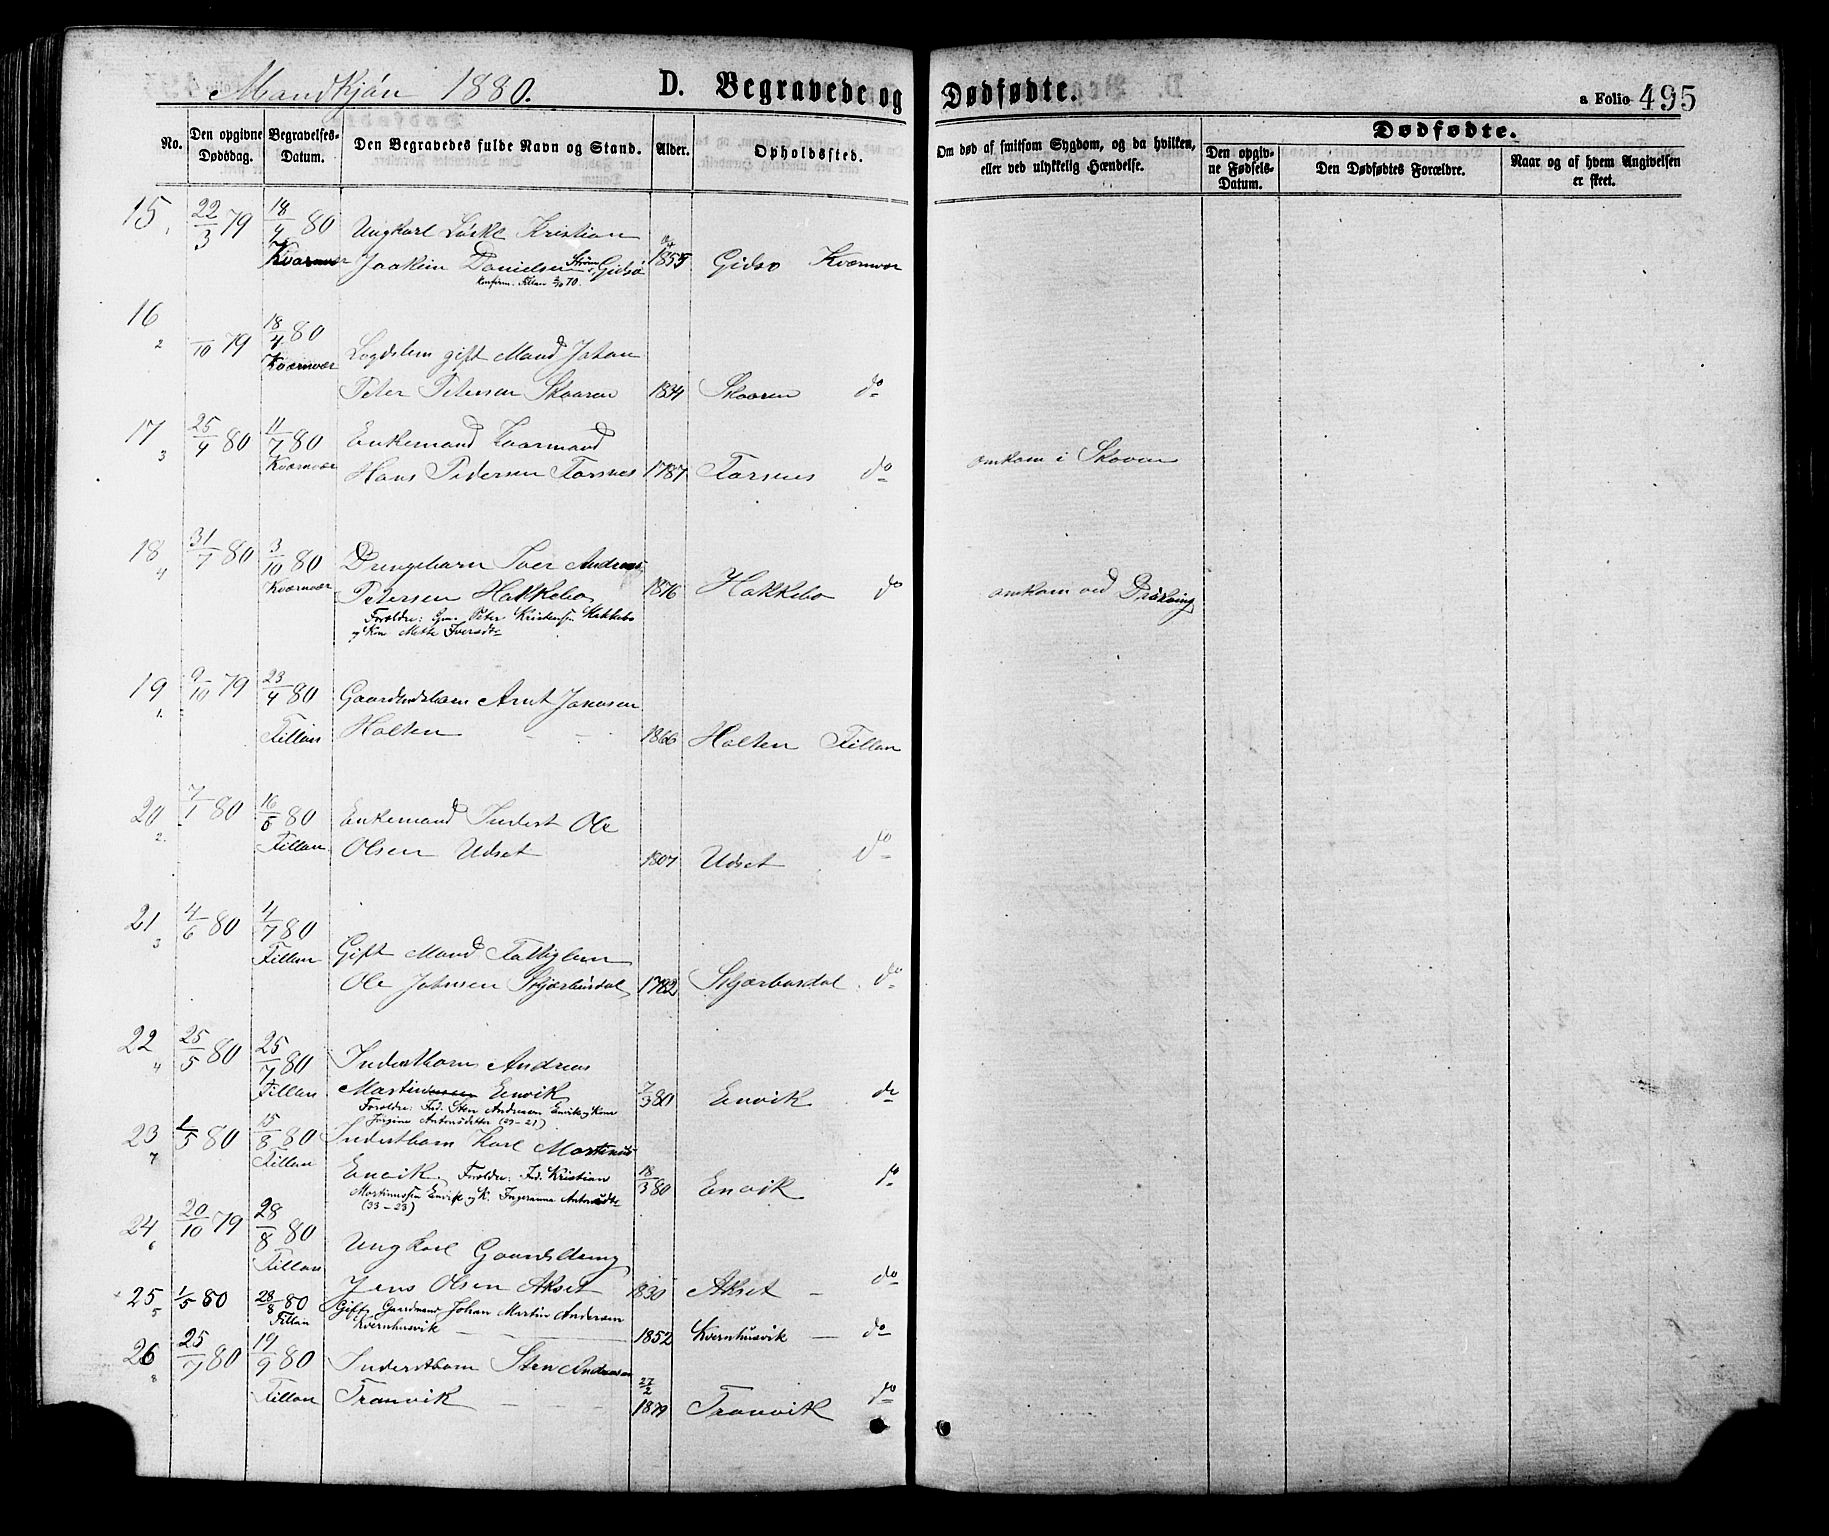 Mandkjøn 1880. D. Begravede og Dødfødte. a Folio 495
No. Den opgivne Dødsdag. Begravelses-Datum. Den Begravedes fulde Navn og Stand. Alder. Opholdssted. Om død af smitsom Sygdom, og da hvilken, eller ved ulykkelig Hændelse. Dødfødte.
Den opgivne Fødsels-Datum. Den Dødfødtes Forældre. Naar og af hvem Angivelsen er skeet.
15 1 22/3 79 18/4 80 Ungkarl Kristian
Kværnvær Joakim Danielsen Gidsø 1855 Gidsø Kværnvær
konfirm. Fillan 70.
16 2 /10 79 18/4 80 Lægdslem gift Mand Johan
Kværnvær Peter Petersen Skaaren 1834 Skaaren do
17 3 25/4 80 11/7 80 Enkemand Kaarmand
Kværnvær Hans Pedersen Forsnes 1787 Forsnes do omkom i Skoven
18 4 31/7 80 3/10 80 Drengebarn Iver Andreas
Kværnvær Petersen Hakkebo 1876 Hakkebo do omkom ved Drukning
Forældre: Gm. Peter Kristensen Hakkebo
og Kone Mette Iversdtr
19 1. 9/10 79 23/4 80 Gaardmandsbarn Arnt Jonasen
Fillan Holten 1866 Holten Fillan
20 2. 7/1 80 16/5 80 Enkemand Inderst Ole
Fillan Olsen Udset 1807 Udset do
21 3 4/6 80 4/7 80
Fillan Gift Mand Fattiglem
Ole Johnsen Skjærbusdal 1782 Skjærbusdal do
22 4 25/5 80 25/7 80 Inderstbarn Andreas
Fillan Martin Envik 7/3 80 Envik do
Forældre: Ind. Sten Andreasen Envik og Kone
Jørgine Antonsdatter (29-21)
23 7 1/5 80 15/8 80 Inderstbarn Karl Martinus
Fillan Envik, Forældre: Ind. Kristian 18/3 80 Envik do
Martinussen Envik og K. Ingeranna Antonsdtr
(33-23)
24 6 20/10 79 28/8 80 Ungkarl Gaardsdreng
Fillan Jens Olsen Akset 1830 Akset do
25 5 1/5 80 28/8 80 Gift Gaardmand Johan Martin Andersen
Fillan Kvernhusvik 1852 Kvernhusvik do
26 8 25/7 80 19/9 80 Inderstbarn Sten Andreasen
Fillan Tranvik 27/2 1879 Tranvik do